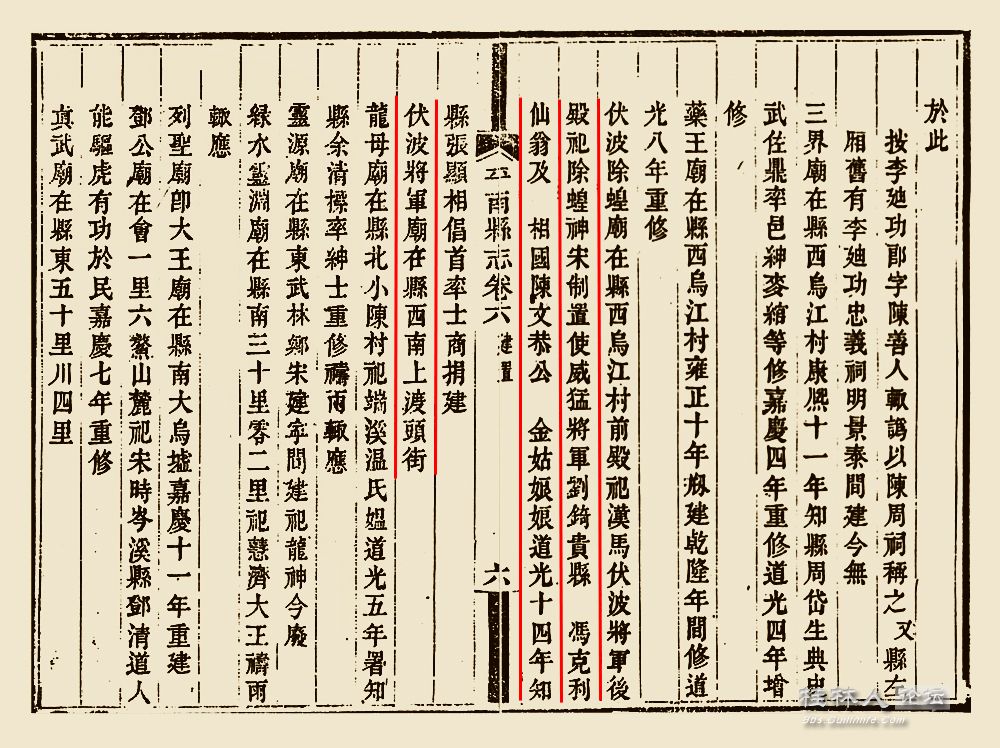 於此
按李廸功郎字陳善人輙譌以陳周祠稱之又縣左
廂舊有李廸功忠義祠明景泰間建今無
三界廟在縣西烏江村康熙十一年知縣周岱生典史
武佐鼎率邑紳麥繪等修嘉慶四年重修道光四年增
修
藥王廟在縣西烏江村雍正十年剏建乾隆年間修道
光八年重修
伏波除蝗廟在縣西烏江村前殿祀漢馬伏波將軍後
殿祀除蝗神宋制置使威猛將軍劉錡貴縣 馮克利
仙翁及 相國陳文恭公 金姑娘娘道光十四年知
平南縣志卷六 建置 六
縣張顯相倡首率士商捐建
伏波將軍廟在縣西南上渡頭街
龍母廟在縣北小陳村祀端溪温氏媼道光五年署知
縣余清標率紳士重修禱雨輙應
靈源廟在縣東武林鄉宋建寧間建祀龍神今廢
綠水靈淵廟在縣南三十里零二里祀慧濟大王禱雨
輙應
列聖廟卽大王廟在縣南大烏墟嘉慶十一年重建
鄧公廟在會一里六螯山麓祀宋時岑溪縣鄧清道人
能驅虎有功於民嘉慶七年重修
真武廟在縣東五十里川四里
桂林人论坛
bbs.guilinlife.com